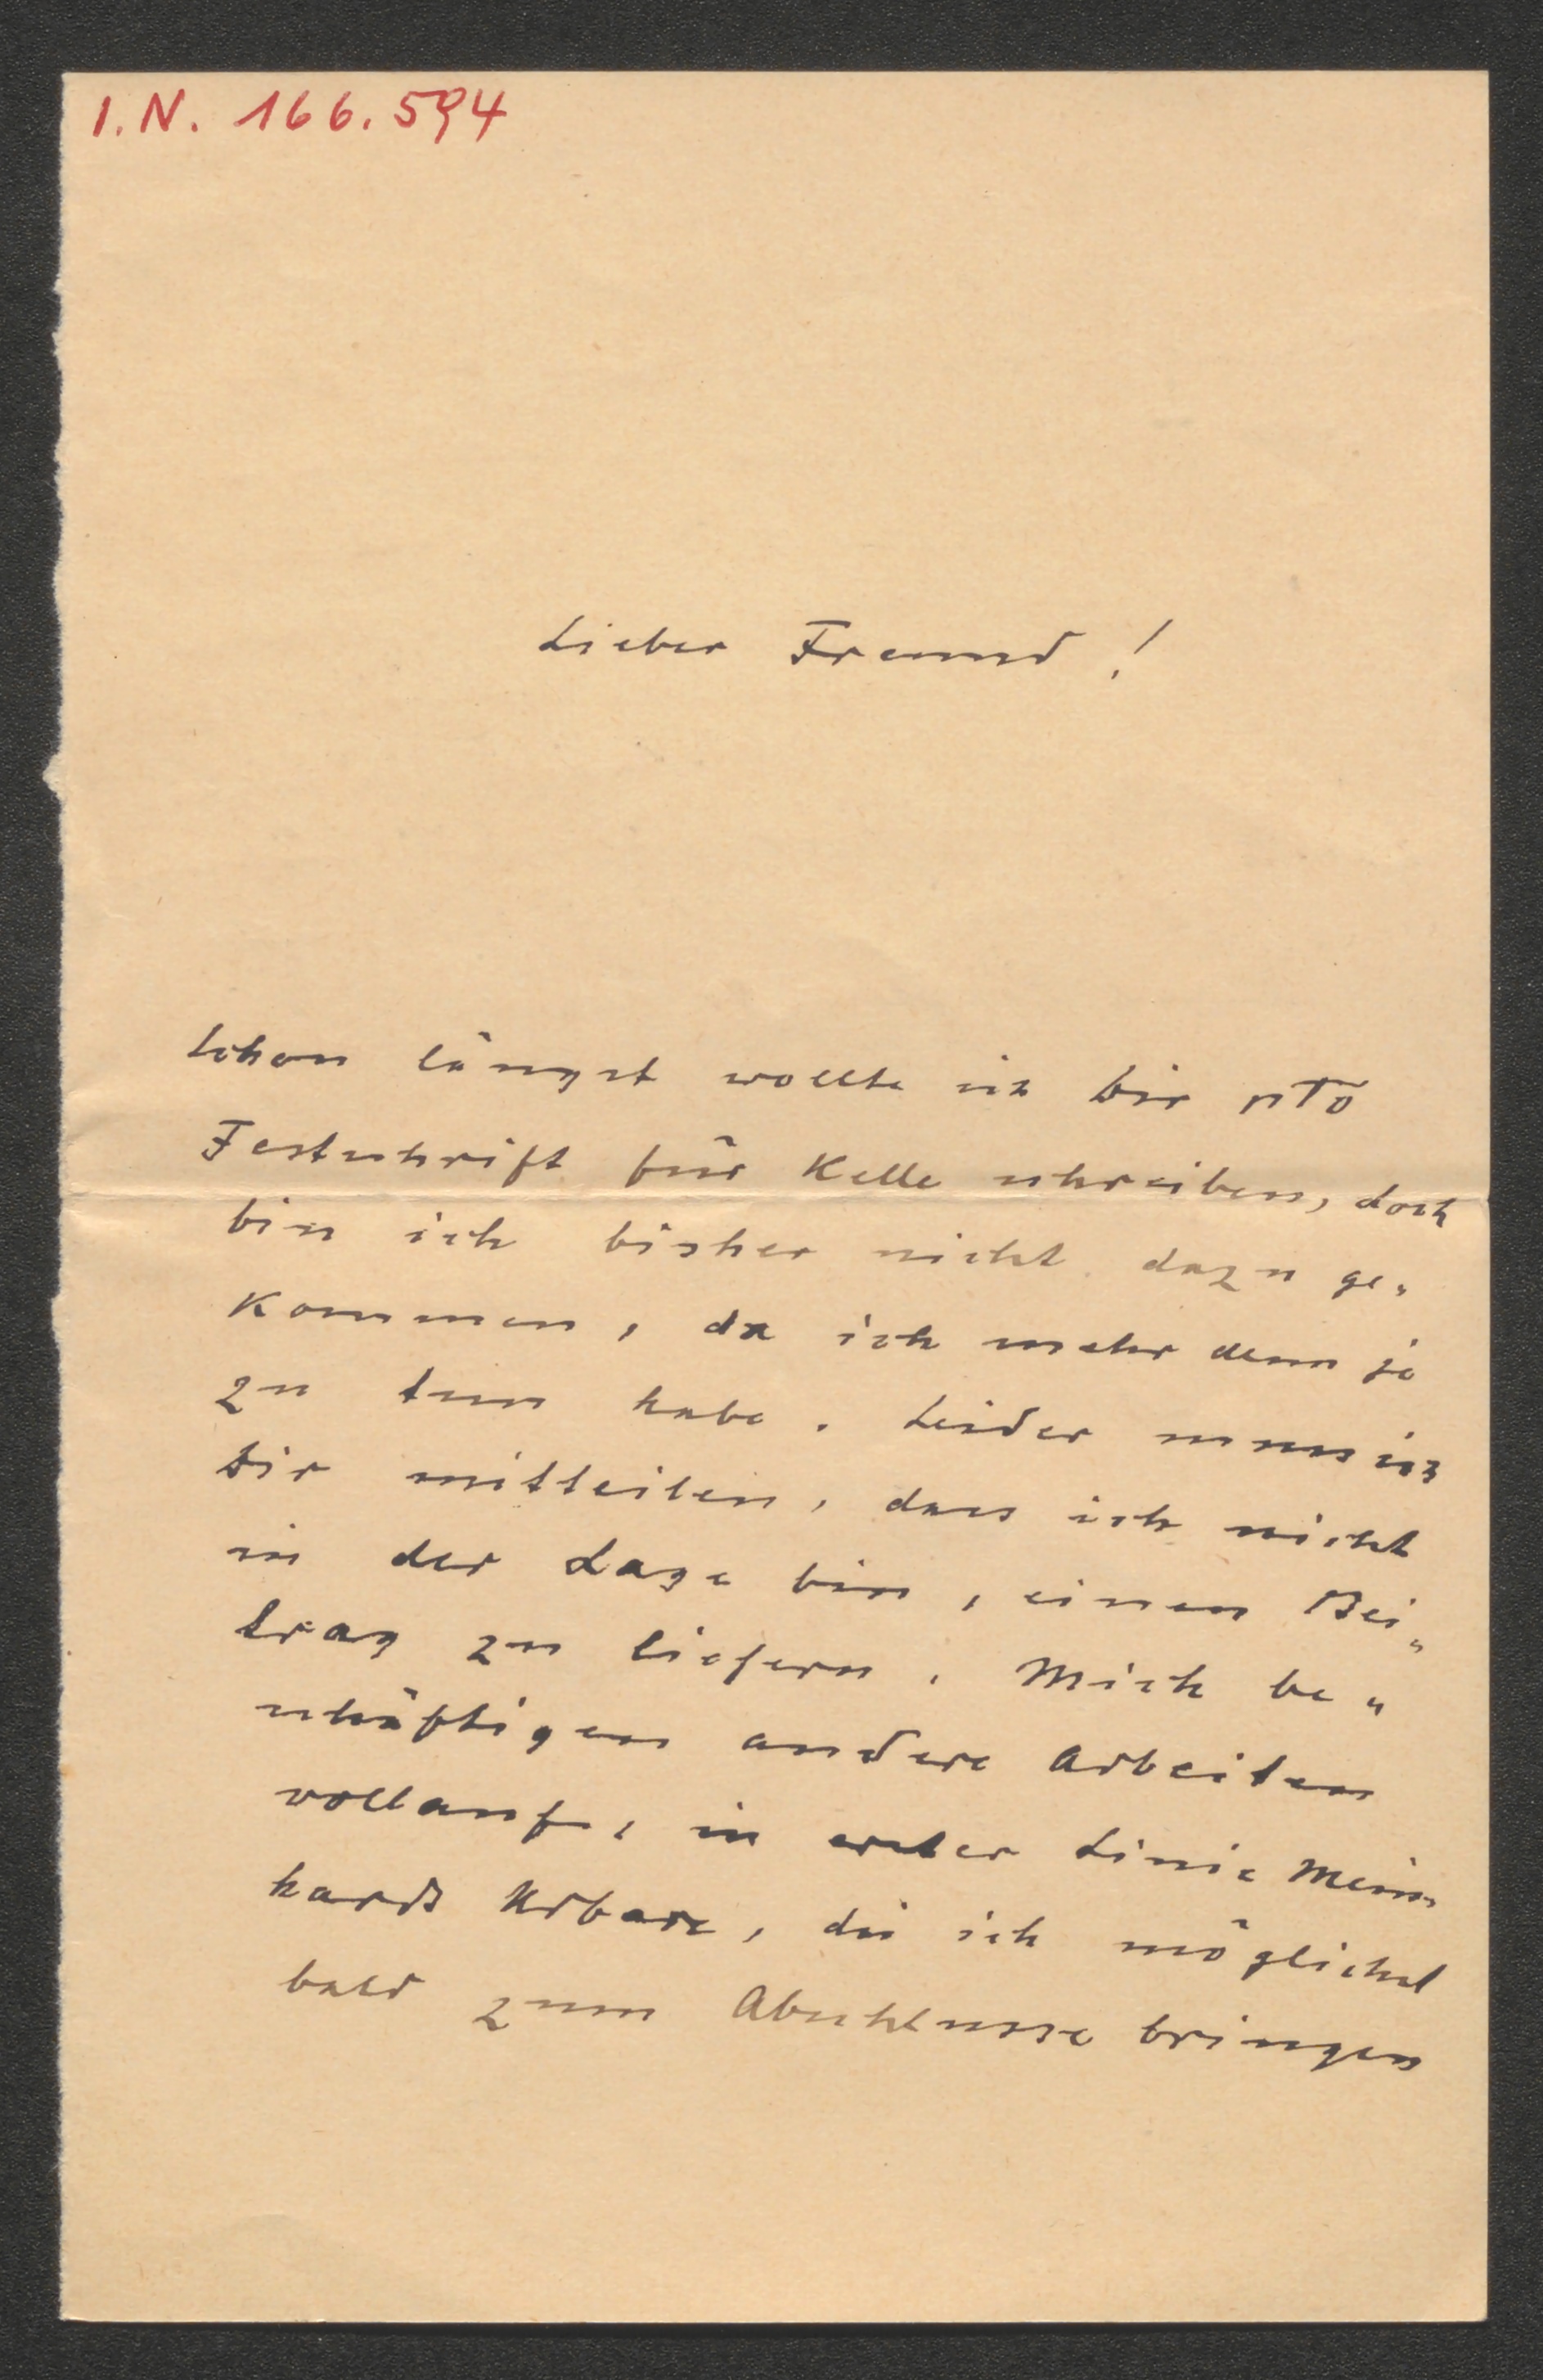 I.N. 166.594
Lieber Freund!
Schon längst wollte ich Dir pto
Festschrift für Kelle schreiben, doch
bin ich bisher nicht dazu ge„
kommen, da ich mehr denn je
zu tun habe. Leider muss ich
Dir mitteilen, dass ich nicht
in der Lage bin, einen Bei„
trag zu liefern. Mich be„
schäftigen andere Arbeiten
vollauf, in erster Linie Mein„
hards Urbare, die ich möglichst
bald zum Abschlusse bringen